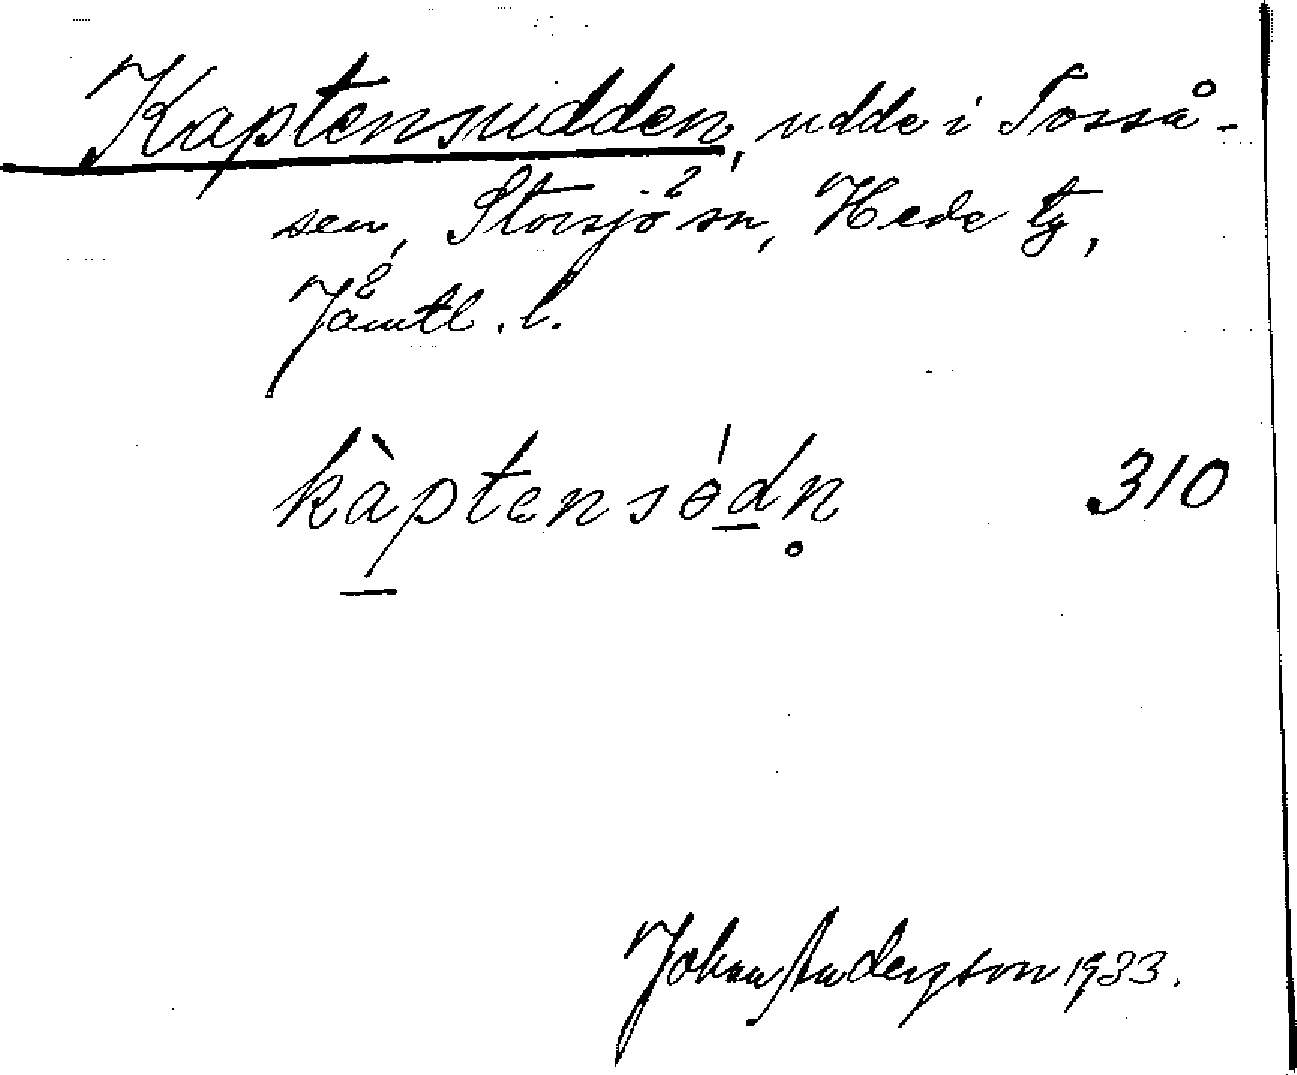 Kaptensudden, udde i Tosså-
sen, Storsjö sn, Hede tg,
Jämtl. l.
kàptensɵ́dn̥ 310
Johan Anderzson 1933.